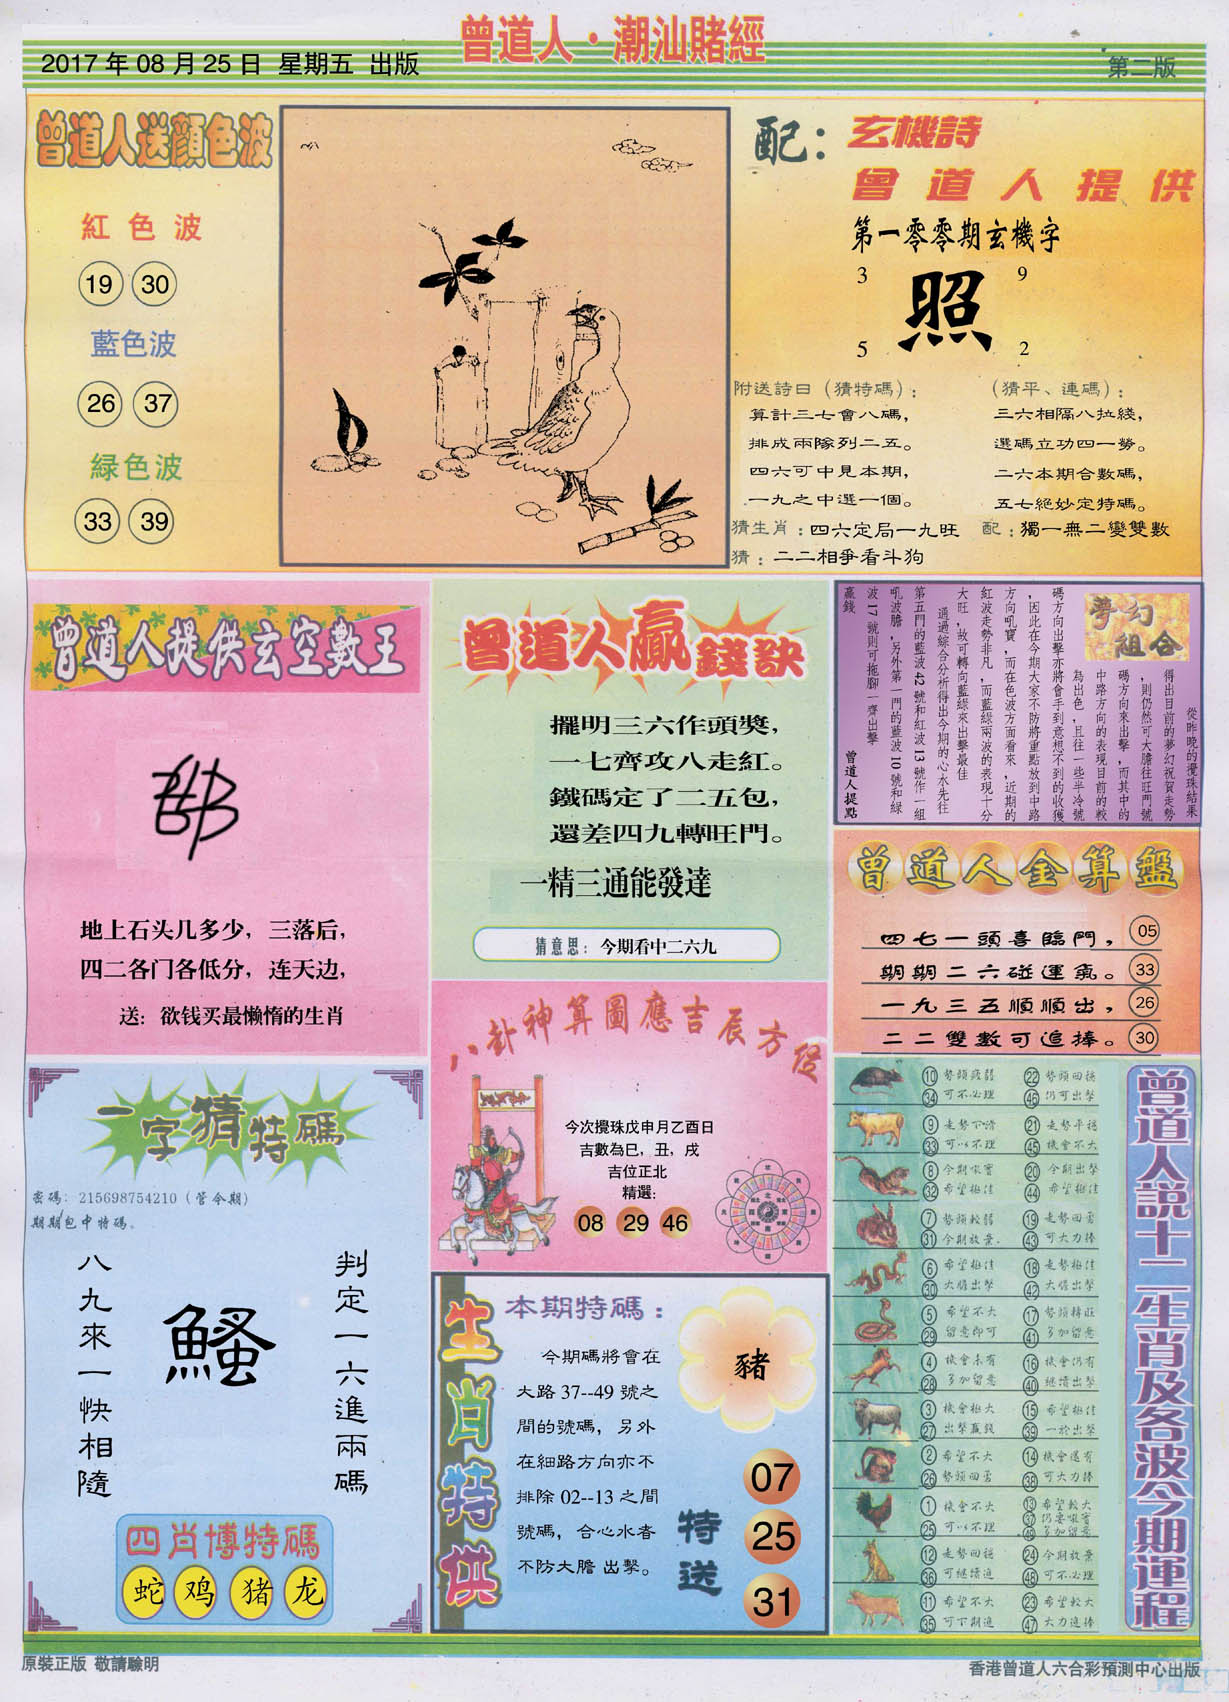 曾道人·潮汕賭經
2017年08月25日 星期五 出版
第二版
曾道人送顏色波
紅色波
19 30
藍色波
26 37
緑色波
33 39
配：玄機詩
曾道人提供
第一零零期玄機字
3 9
照
5 2
附送詩曰（猜特碼）：
算計三七會八碼，
排成兩隊列二五。
四六可中見本期，
一九之中選一個。
（猜平、連碼）：
三六相隔八拉綫，
選碼立功四一勞。
二六本期合數碼，
五七絕妙定特碼。
猜生肖：四六定局一九旺
配：獨一無二變雙數
猜：二二相爭看斗狗
曾道人提供玄空數王
地上石头几多少，三落后，
四二各门各低分，连天边，
送：欲钱买最懒惰的生肖
曾道人贏錢訣
擺明三六作頭獎，
一七齊攻八走紅。
鐵碼定了二五包，
還差四九轉旺門。
一精三通能發達
猜意思：今期看中二六九
夢幻組合
從昨晚的攪珠結果
得出目前的夢幻祝賀走勢
，則仍然可大膽往旺門號
碼方向來出擊，而其中的
中路方向的表現目前的較
為出色，且往一些半冷號
碼方向出擊亦將會手到意想不到的收獲
，因此在今期大家不防將重點放到中路
方向吼寶，而在色波方面看來，近期的
紅波走勢非凡，而藍綠兩波的表現十分
大旺，故可轉向藍綠來出擊最佳
通過綜合分析得出今期的心水先往
第五門的藍波42號和紅波13號作一組
吼波膽，另外第一門的藍波10號和綠
波17號則可拖腳一齊出擊
贏錢
曾道人提點
曾道人金算盤
四七一頭喜臨門， 05
期期二六碰運氣。 33
一九三五順順出， 26
二二雙數可追捧。 30
八卦神算圖應吉辰方位
今次攪珠戊申月乙酉日
吉數為巳，丑，戌
吉位正北
精選：
08 29 46
一字猜特碼
密碼：215698754210（管今期）
期期包中特碼。
判定一六進兩碼
鰠
八九來一快相隨
四肖博特碼
蛇 鸡 猪 龙
生肖特供
本期特碼：
今期碼將會在
大路37--49號之
間的號碼，另外
在細路方向亦不
排除02--13之間
號碼，合心水者
不防大膽出擊。
豬
特送
07
25
31
曾道人説十二生肖及各波今期運程
10 勢頭疲弱 22 勢頭回穩
34 可不必理 46 仍可出擊
9 走勢下滑 21 走勢平穩
33 可以不理 45 機會不大
8 今期吼寶 20 今期出擊
32 希望極佳 44 希望極佳
7 勢頭較弱 19 走勢回勇
31 今期放棄 43 可大力捧
6 希望極佳 18 走勢極佳
30 大膽出擊 42 大膽出擊
5 希望不大 17 勢頭轉旺
29 留意即可 41 多加留意
4 機會未有 16 機會仍有
28 多加留意 40 繼續出擊
3 機會極大 15 希望極佳
27 出擊贏錢 39 一於出擊
2 希望不大 14 機會還有
26 勢頭回勇 38 可大力捧
1 機會不大 13 希望較大
37 仍要吼寶
25 可以不理 49 多加留意
12 走勢回穩 24 今期放棄
36 可繼續追 48 可不必理
11 希望不大 23 希望較大
35 可下期追 47 大力追捧
原裝正版 敬請驗明
香港曾道人六合彩預測中心出版